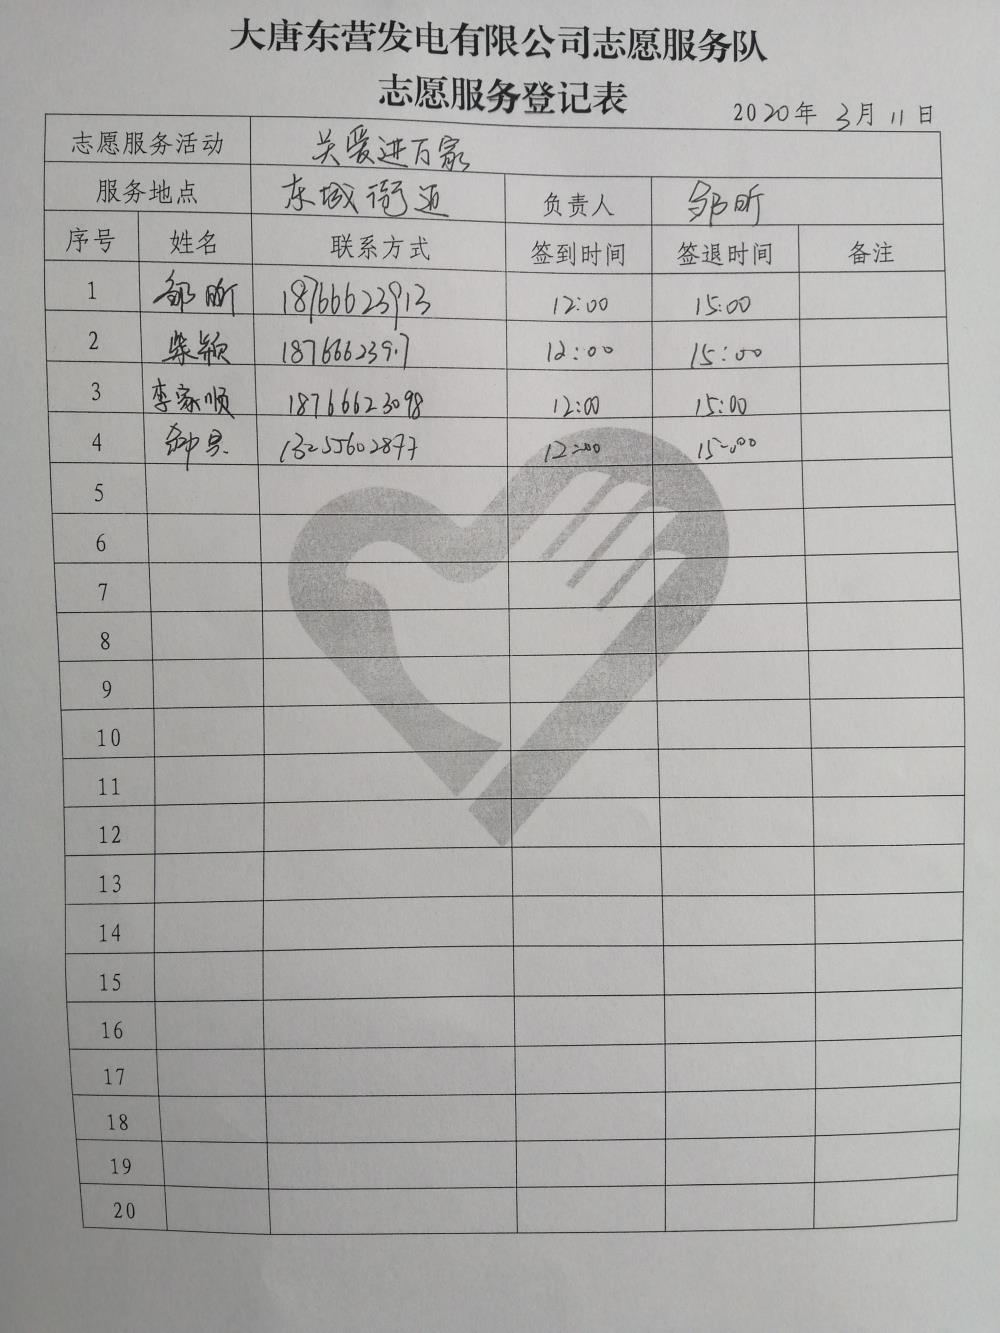 大唐东营发电有限公司志愿服务队
志愿服务登记表
2020年 3月 11日
志愿服务活动 关爱进百家
服务地点 东城街道 负责人 邹昕
序号 姓名 联系方式 签到时间 签退时间 备注
1 邹昕 18766623913 12:00 15:00
2 柴颖 187666239.7 12:00 15:00
3 李家顺 18766623098 12:00 15:00
4 13255602877 12:00 15:00
5
6
7
8
9
10
11
12
13
14
15
16
17
18
19
20